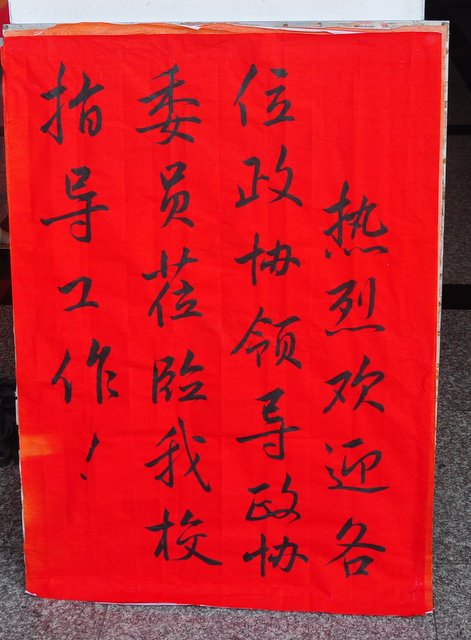 热烈欢迎各
位政协领导政协
委员莅临我校
指导工作！